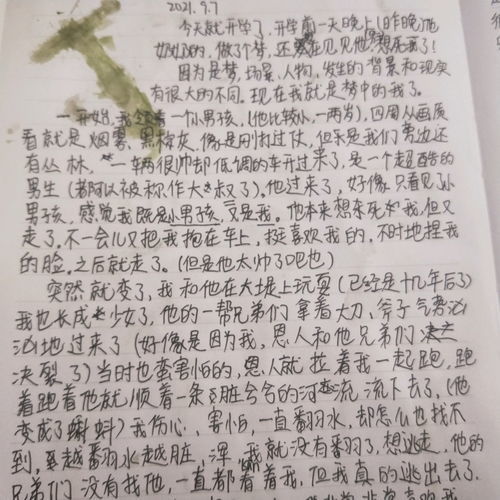 2021.9.7
今天就开学了，开学前一天晚上(昨晚)
做了个梦，还
因为是梦，场景，人物，发生的背景和现实
有很大的不同。现在我就是梦中的我了。
一开始，我领着一个小男孩，(他比较小，一两岁)，四周从画质
看就是烟雾，黑棕灰，像是刚打过仗，但是我们旁边还
有丛林，一辆很帅却低调的车开过来了，是一个超酷的
男生(都可以被称作大叔了)。他过来了，好像只看见了小
男孩，感觉我既是小男孩，又是我。他本来想我，但又
走了。不一会儿又把我抱在车上，挺喜欢我的，不时地捏我
的脸，之后就走了。(但是他太帅了吧也)
突然就变了，我和他在大堤上玩耍(已经是十几年后了)
我也长成少女了，他的一帮兄弟们拿着大刀，斧子气势汹
汹地过来了(好像是因为我，恩人和他兄弟们
决裂了)当时也蛮害怕的，恩人就拉着我一起跑，跑
着跑着他就顺着一条脏兮兮的河流流下去了，(他
变成了蝌蚪)我伤心，害怕，一直翻水，却怎么也找不
到，越翻水越脏，浑，我就没有翻了，想逃走，他的
兄弟们没有找他，一直都看着我，但我真的逃出去了.